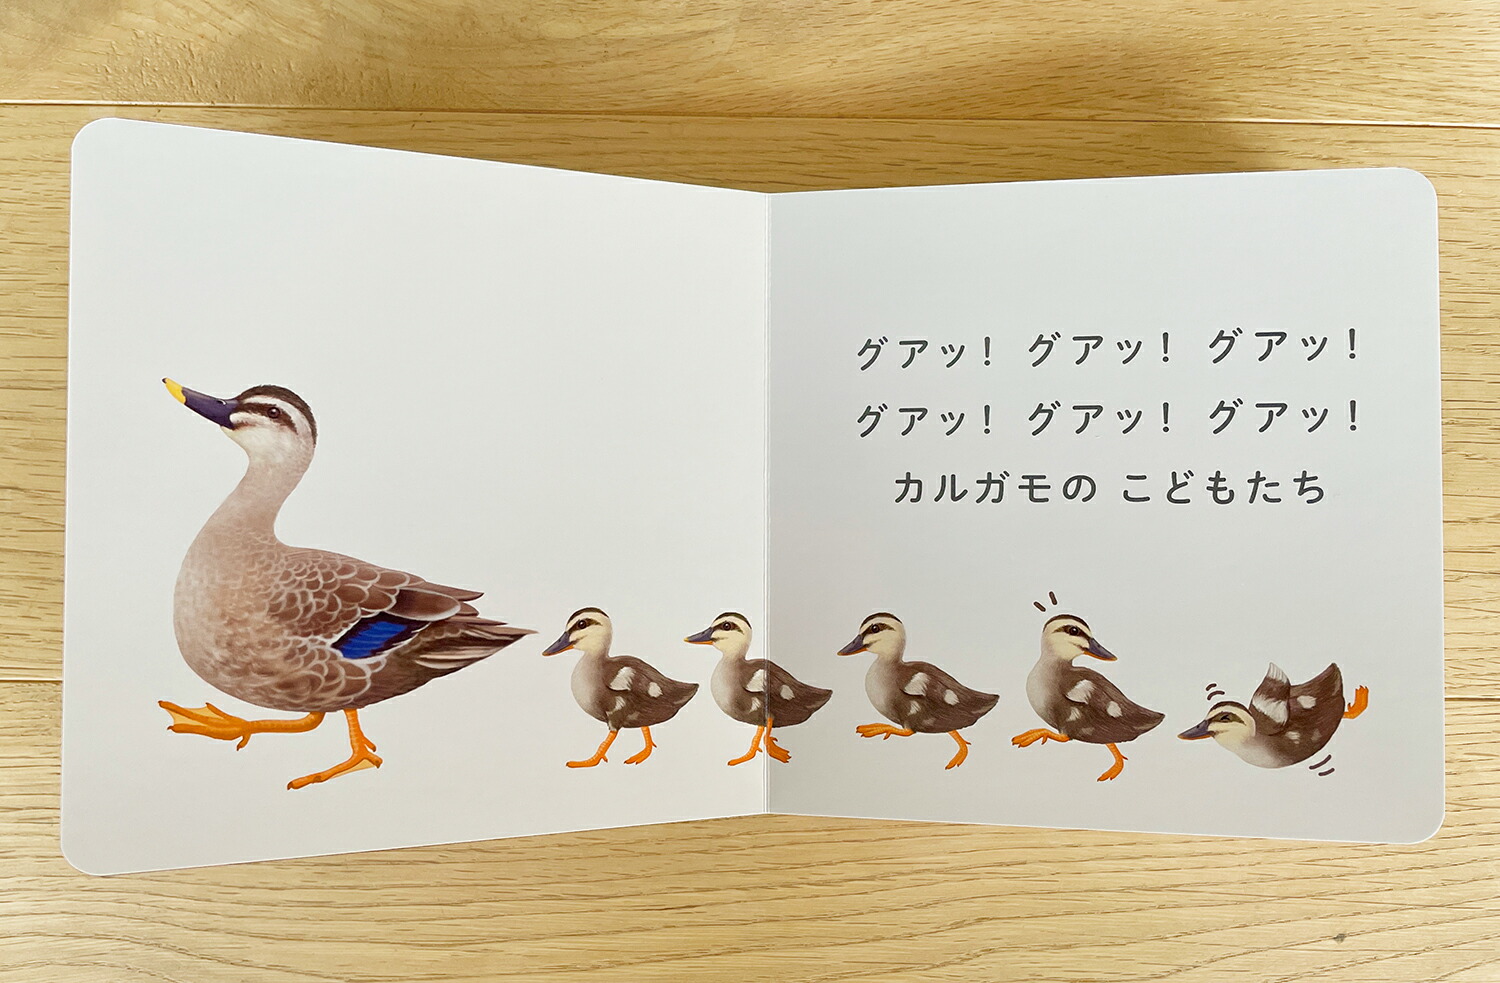 グアッ! グアッ! グアッ!
グアッ! グアッ! グアッ!
カルガモの こどもたち